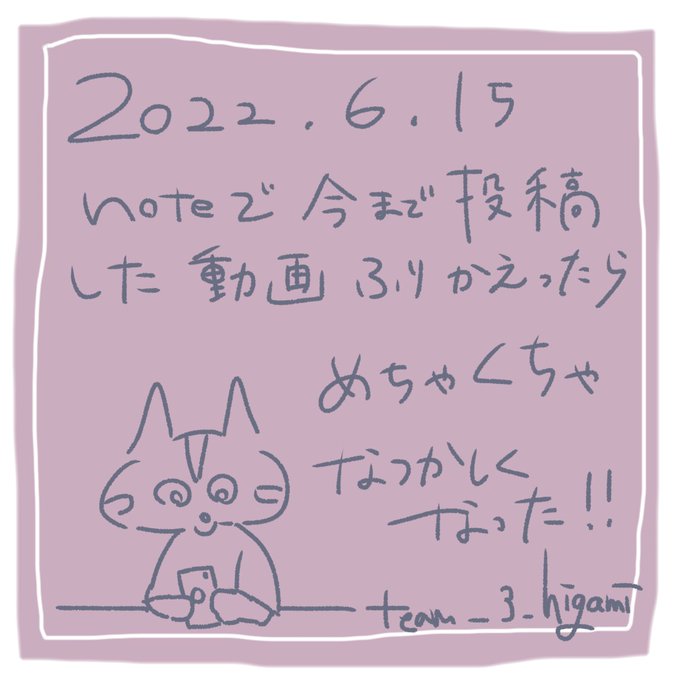 2022.6.15
noteで今まで投稿
した動画ふりかえったら
めちゃくちゃ
なつかしく
なった!!
team_3_higami